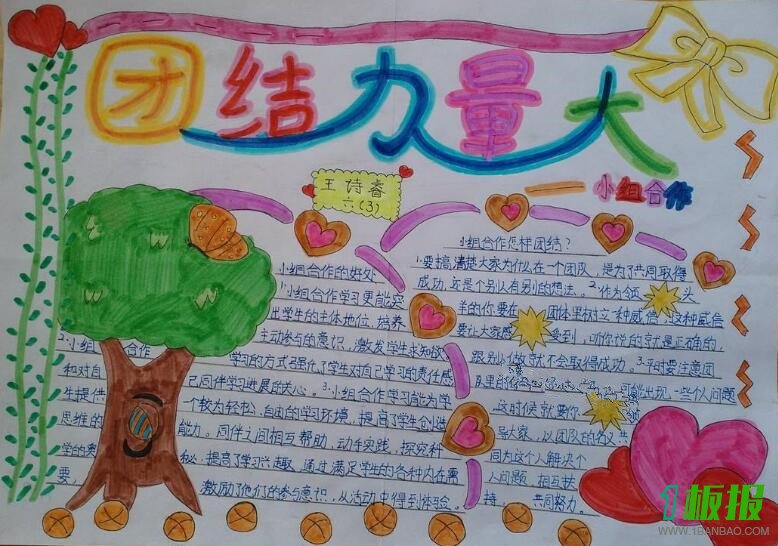 团结力量大
——小组合作
王诗睿
六(3)
小组合作的好处
1.小组合作学习更能突
出学生的主体地位,培养
主动参与的意识,激发学生求知欲
2.小组合作
学习的方式强化了学生对自己学习的责任感
和对自己同伴学习进展的关心。3.小组合作学习能为学
生提供一个较为轻松、自由的学习环境,提高了学生创造
思维的能力。同伴之间相互帮助,动手实践,探究科
学的奥秘,提高了学习兴趣,通过满足学生的各种内在需
要,激励了他们的参与意识,从活动中得到体验。
小组合作怎样团结?
1.要搞清楚大家为什么在一个团队,是为了共同取得
成功,还是个别人有别的想法。2.作为领头
羊的你,要在团体里树立一种威信,这种威信
要让大家感受到,听你说的就是正确的,
跟别人做就不会取得成功。3.平时要注意团
队里的 可能出现一些个人问题
这时候就要你
导大家,以团队的名义共
同为这个人解决个
人问题,相互扶
持,共同努力。
1板报
WWW.1BANBAO.COM